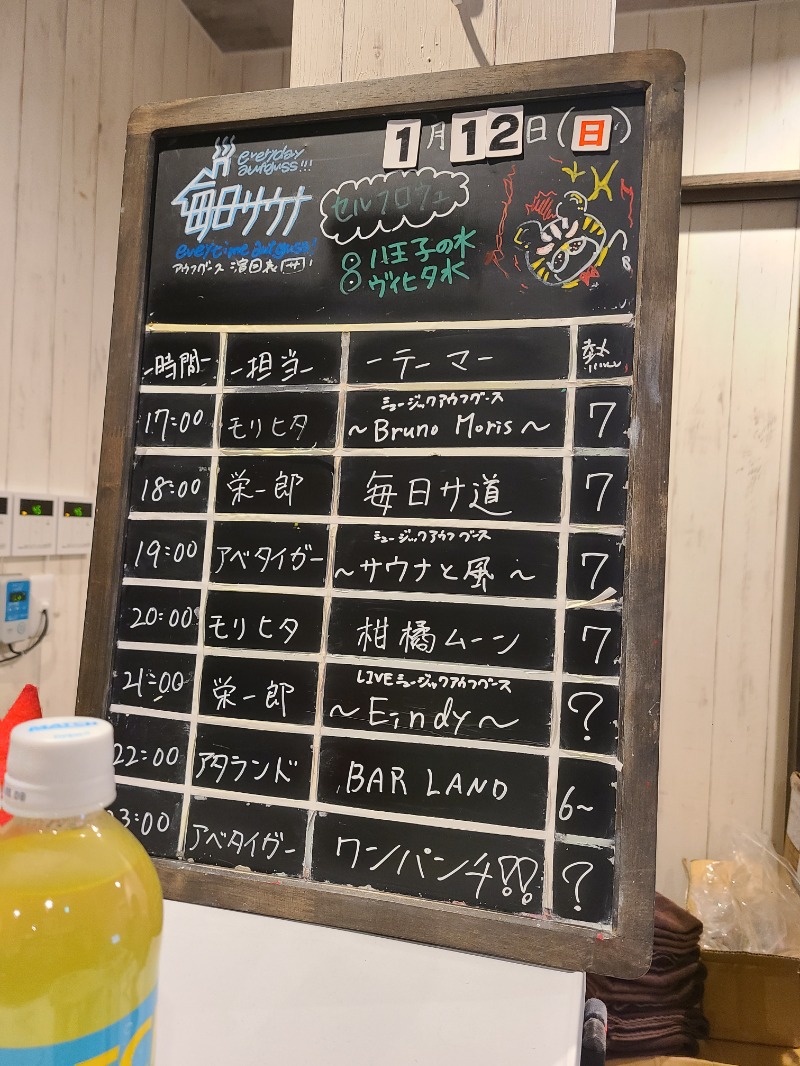 1月12日(日)
everyday
aufguss!!!
毎日サウナ
everytime aufguss!
セルフロウリュ
八王子の水
ヴィヒタ水
-時間- -担当- -テーマー 熱
17:00 モリヒタ ミュージックアウフグース ～Bruno Moris～ 7
18:00 栄一郎 毎日サ道 7
19:00 アベタイガー ミュージックアウフグース ～サウナと風～ 7
20:00 モリヒタ 柑橘ムーン 7
21:00 栄一郎 LIVEミュージックアウフグース ～Eindy～ ?
22:00 アタランド BAR LAND 6~
23:00 アベタイガー ワンパンチ!! ?
MATCH